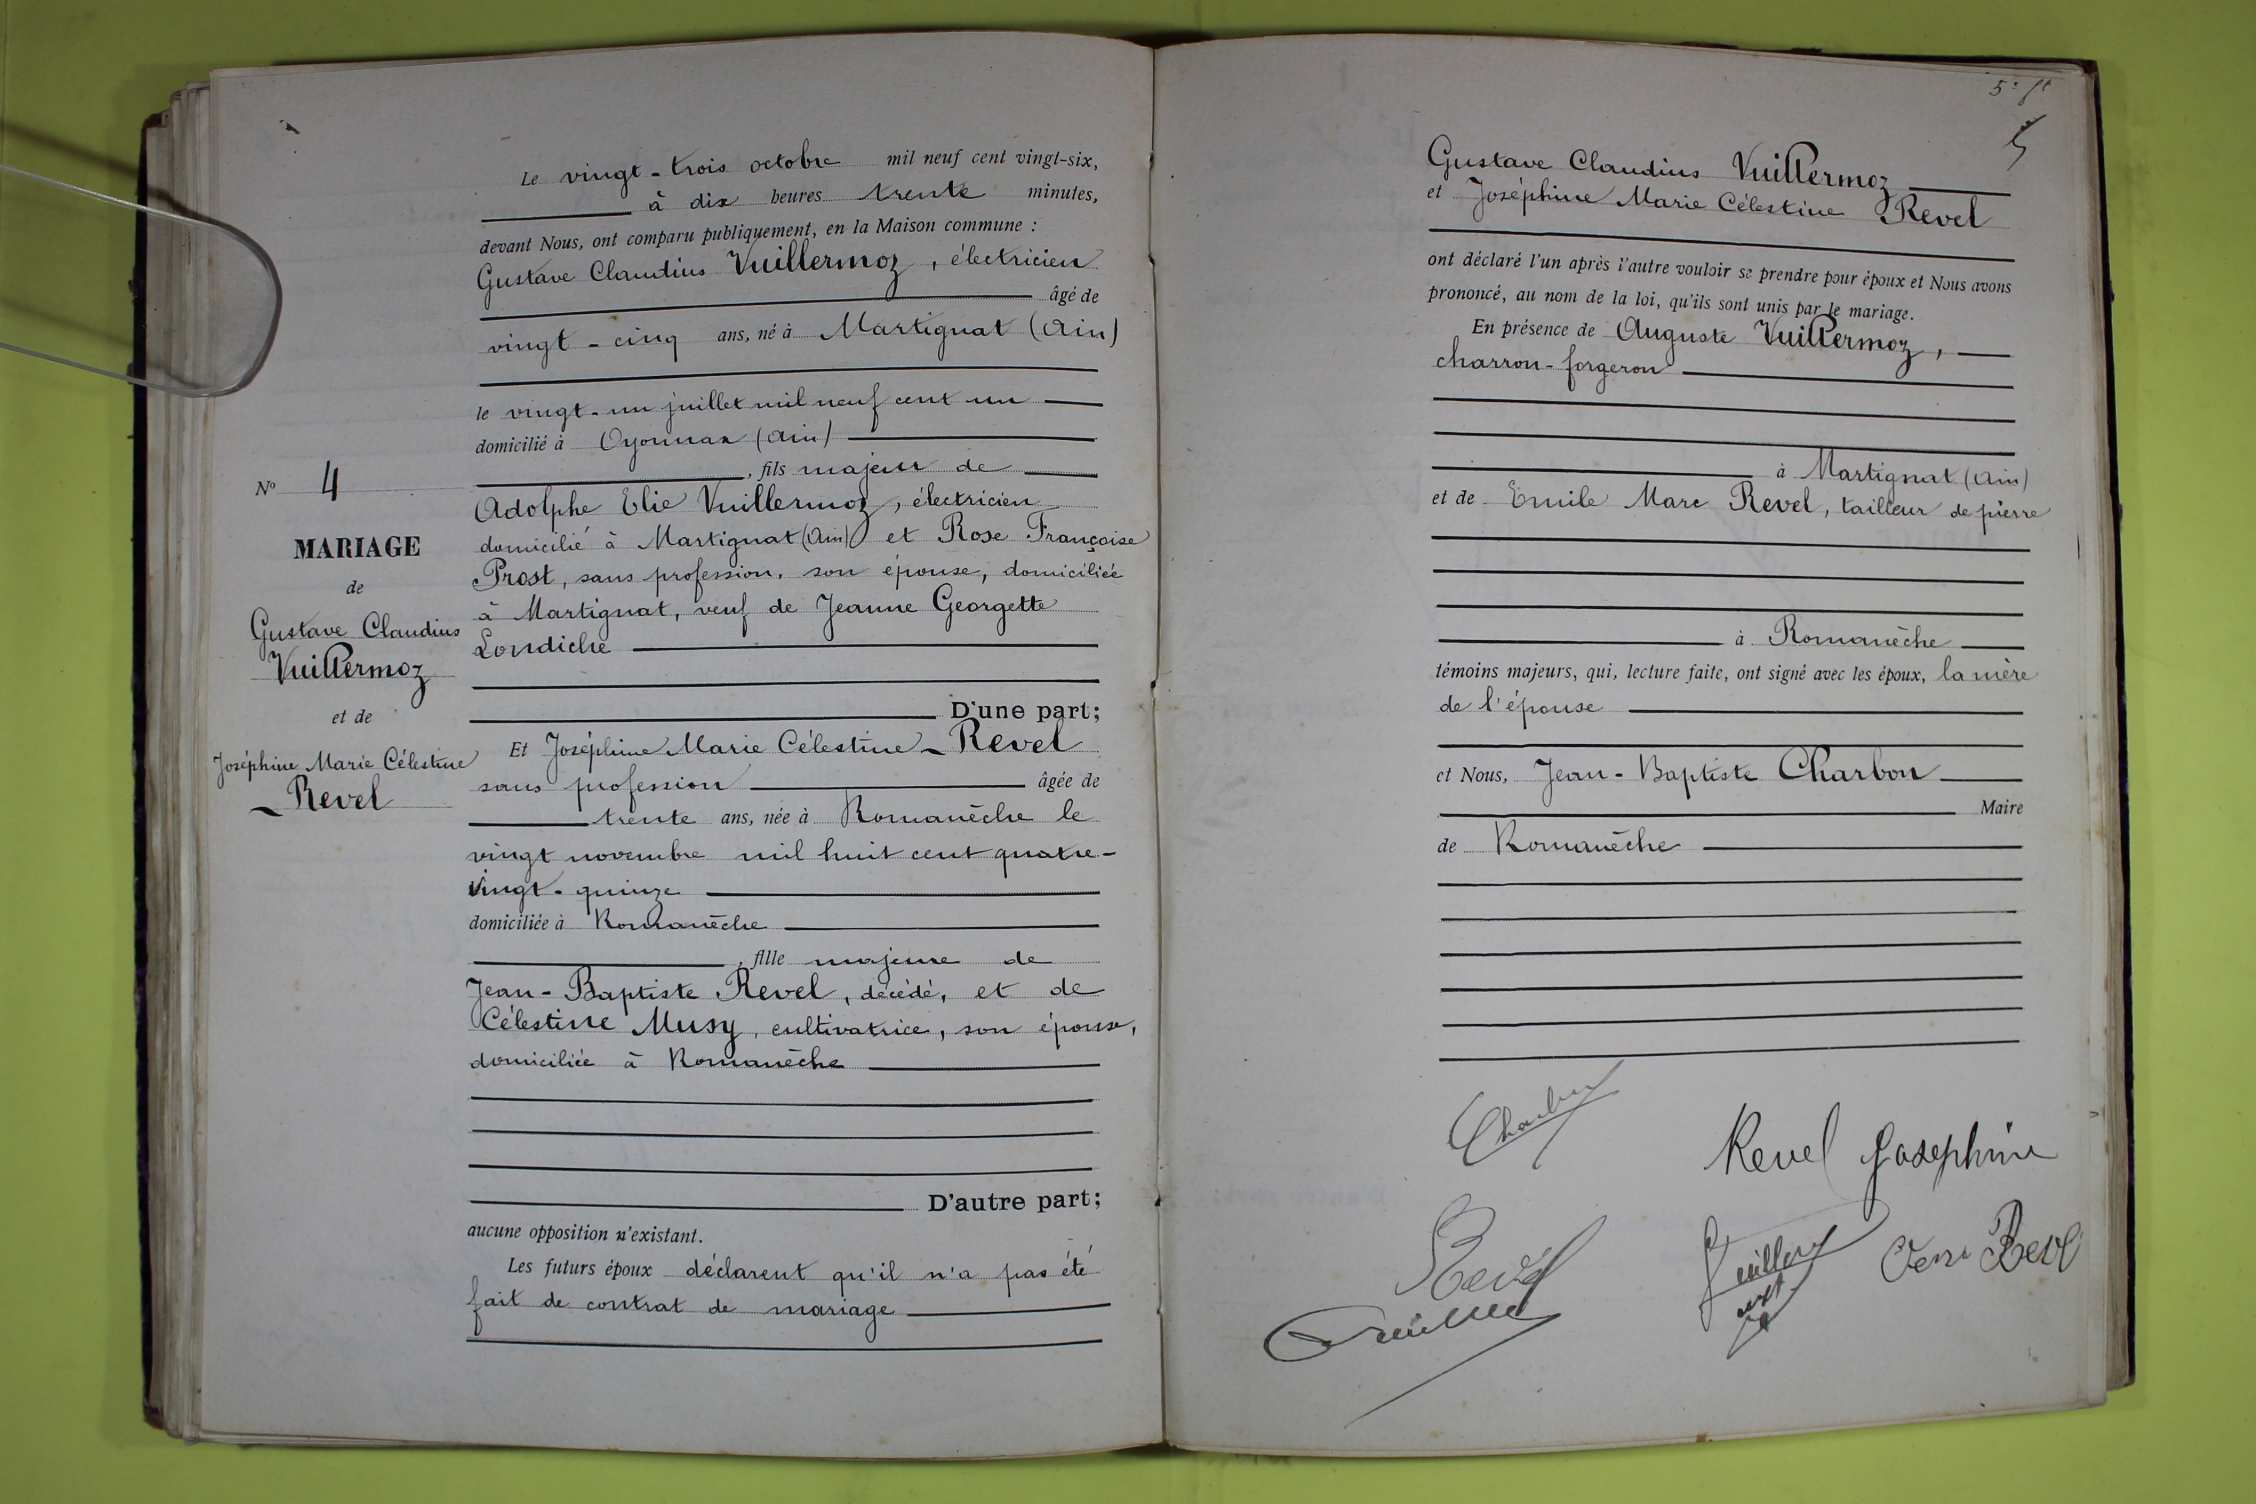 Le vingt-trois octobre mil neuf cent vingt-six,
à dix heures trente minutes,
devant Nous, ont comparu publiquement, en la Maison commune :
Gustave Claudius Vuillermoz, électricien
âgé de
vingt-cinq ans, né à Martignat (Ain)
le vingt-un juillet mil neuf cent un
domicilié à Oyonnax (Ain)
, fils majeur de
Adolphe Elie Vuillermoz, électricien
domicilié à Martignat (Ain) et Rose Françoise
Prost, sans profession, son épouse, domiciliée
à Martignat, veuf de Jeanne Georgette
Londiche
D'une part;
Et Joséphine Marie Célestine Revel
sans profession âgée de
trente ans, née à Romanèche le
vingt novembre mil huit cent quatre-
vingt-quinze
domiciliée à Romanèche
, fille majeure de
Jean-Baptiste Revel, décédé, et de
Célestine Musy, cultivatrice, son épouse,
domiciliée à Romanèche
D'autre part;
aucune opposition n'existant.
Les futurs époux déclarent qu'il n'a pas été
fait de contrat de mariage
No 4
MARIAGE
de
Gustave Claudius
Vuillermoz
et de
Joséphine Marie Célestine
Revel
5
Gustave Claudius Vuillermoz
et Joséphine Marie Célestine Revel
ont déclaré l'un après l'autre vouloir se prendre pour époux et Nous avons
prononcé, au nom de la loi, qu'ils sont unis par le mariage.
En présence de Auguste Vuillermoz,
charron-forgeron
à Martignat (Ain)
et de Emile Marc Revel, tailleur de pierre
à Romanèche
témoins majeurs, qui, lecture faite, ont signé avec les époux, la mère
de l'épouse
et Nous, Jean-Baptiste Charbon
Maire
de Romanèche
Revel Josephine
Revel
Revel